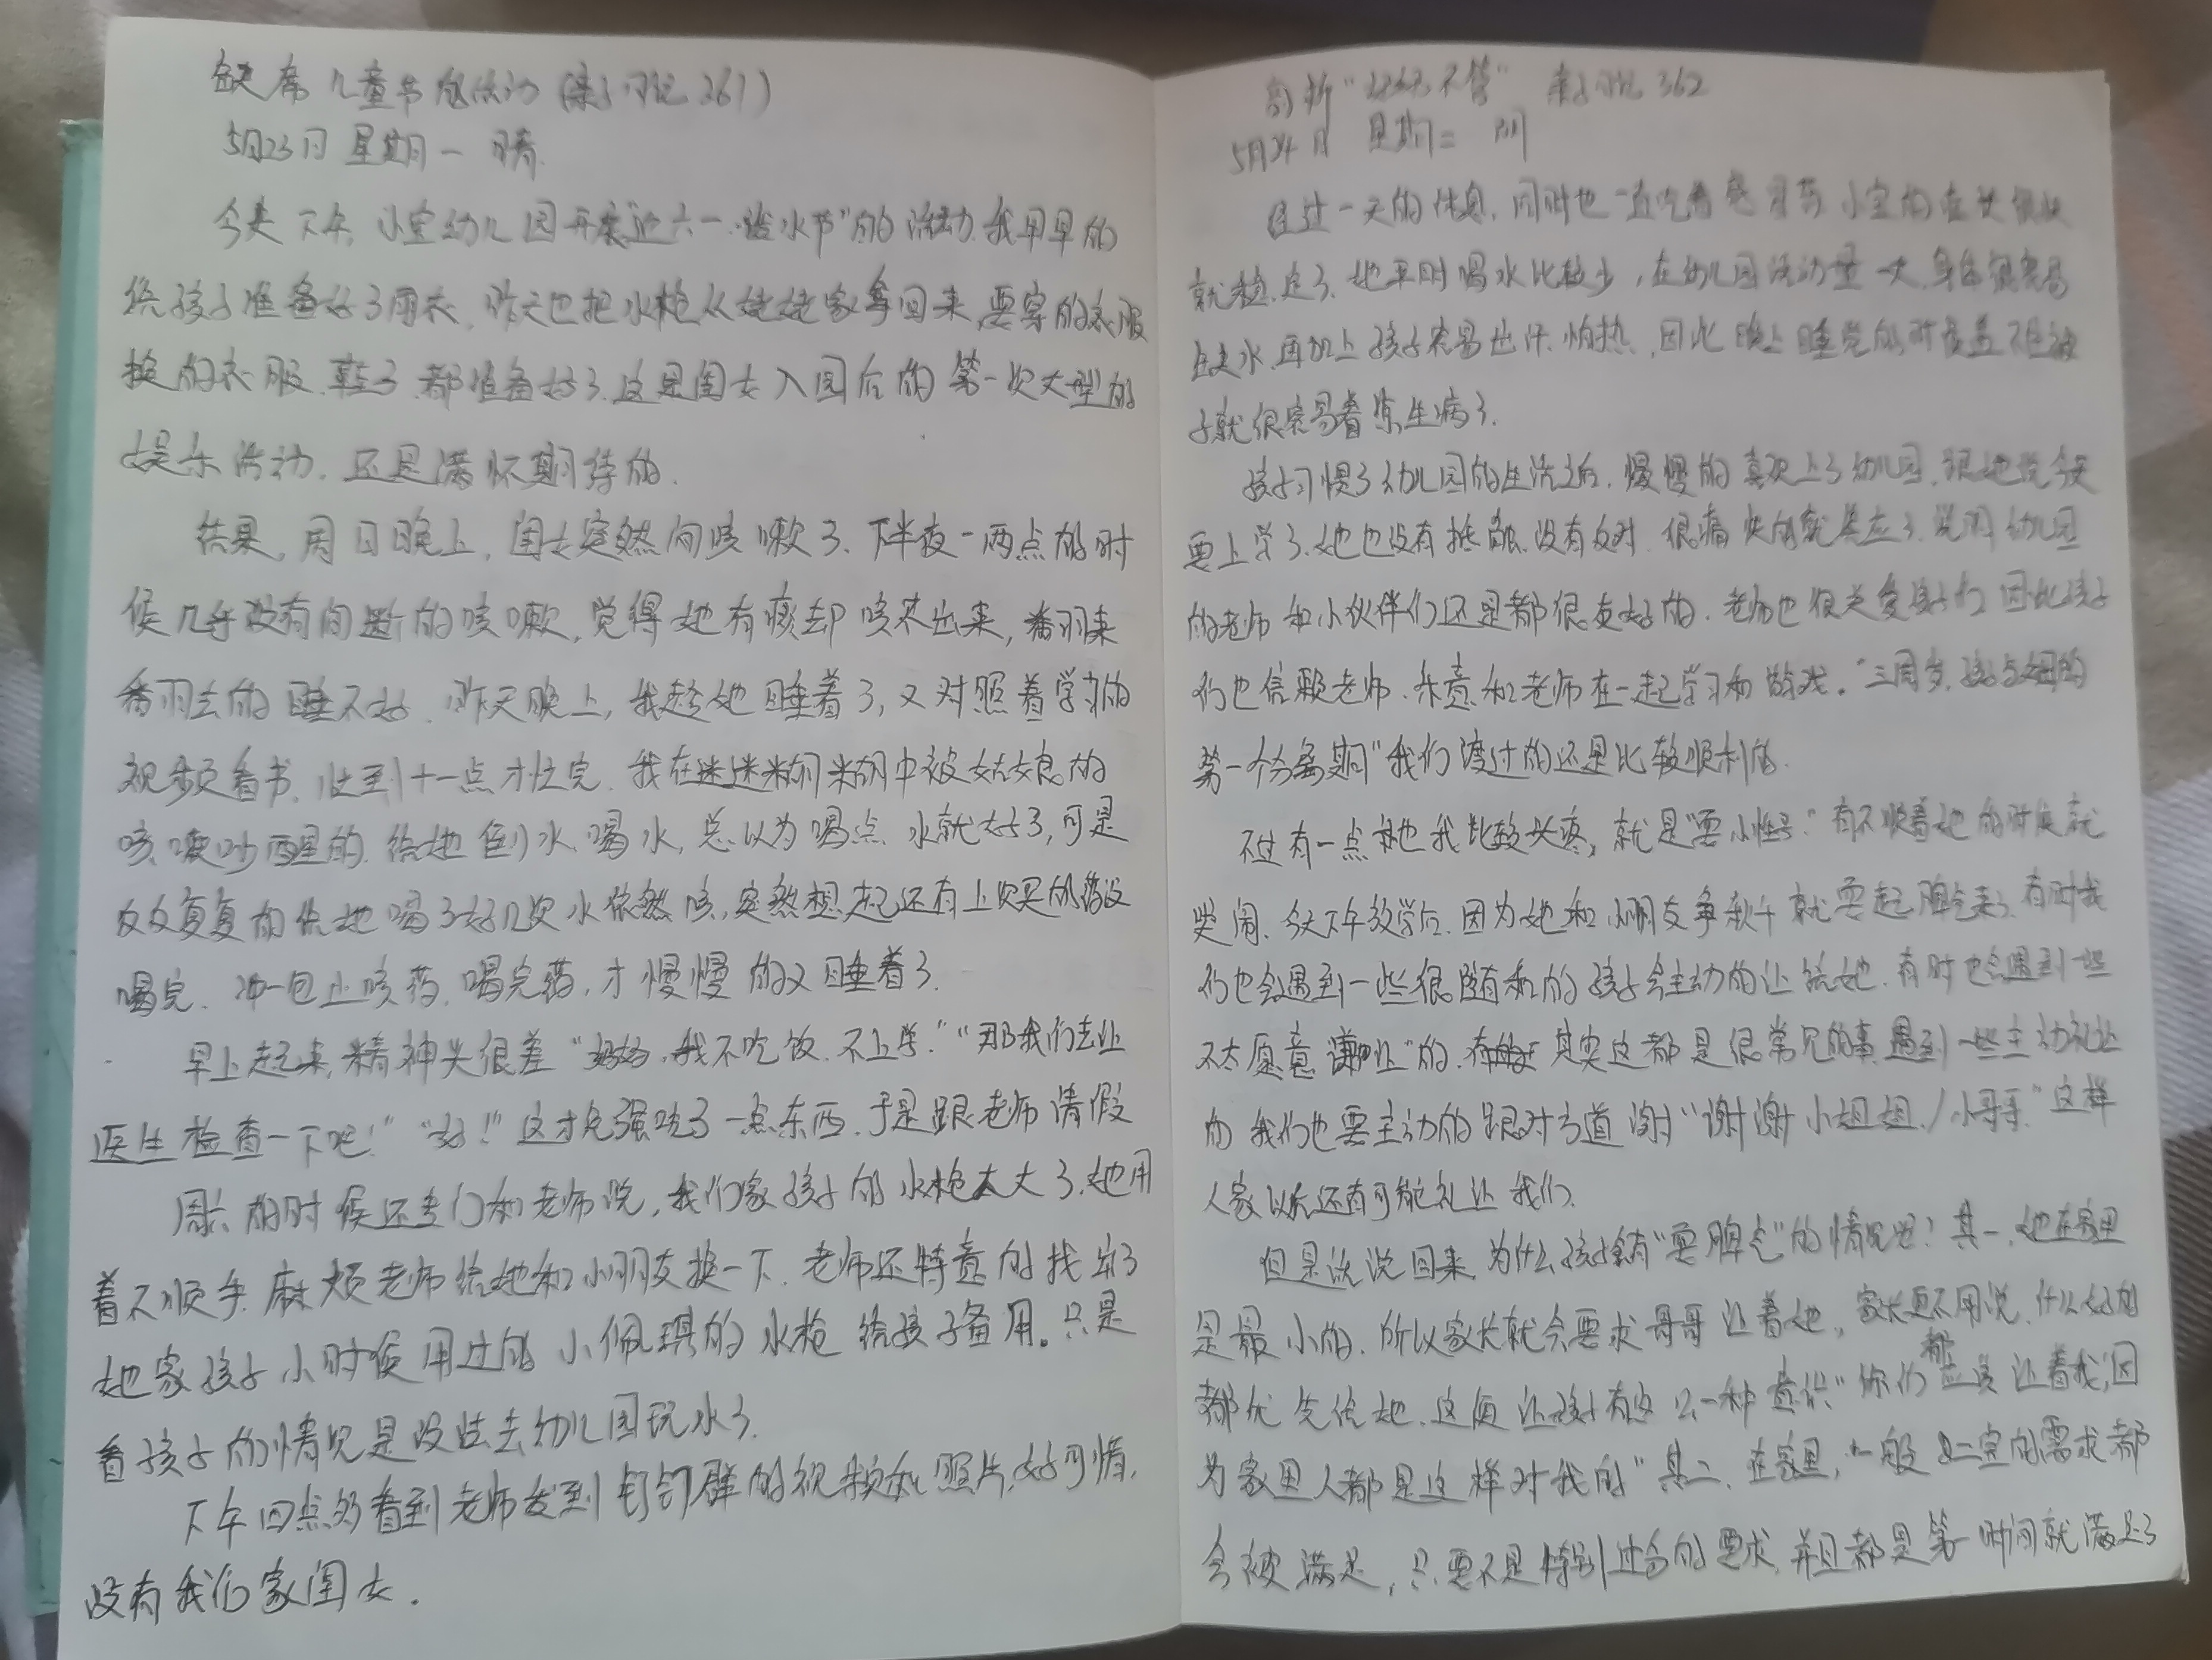 缺席儿童节活动(亲子日记261)
5月23日 星期一 晴
今天下午,小宝幼儿园开展迎六一"泼水节"的活动,我早早的
给孩子准备好了雨衣,昨天也把水枪从姥姥家拿回来,要穿的衣服
换的衣服、鞋子都准备好了,这是闺女入园后的第一次大型的
娱乐活动,还是满怀期待的.
结果,周日晚上,闺女突然间咳嗽了、下半夜一两点的时
候几乎没有间断的咳嗽,觉得她有痰却咳不出来,番羽来
番羽去的睡不好.昨天晚上,我趁她睡着了,又对照着学习的
视频看书,忙到十一点才忙完.我在迷迷糊糊中被姑娘的
咳嗽吵醒的,给她倒水、喝水,总以为喝点水就好了,可是
反反复复的给她喝了好几次水依然咳,突然想起还有上次买的药没
喝完、冲一包止咳药,喝完药,才慢慢的又睡着了.
早上起来,精神头很差"妈妈,我不吃饭,不上学.""那我们去让
医生检查一下吧!""好!"这才勉强吃了一点东西.于是跟老师请假
周六的时候还专门和老师说,我们家孩子的水枪太大了,她用
着不顺手,麻烦老师给她和小朋友换一下.老师还特意的找出了
她家孩子小时候用过的小佩琪的水枪给孩子备用。只是
看孩子的情况是没法去幼儿园玩水了.
下午四点多看到老师发到钉钉群的视频和照片,好可惜,
没有我们家闺女.
剖析 亲子日记362
5月24日 星期二 阴
经过一天的休息,同时也一直吃着感冒药,小宝的症状很快
就稳定了.她平时喝水比较少,在幼儿园活动量一大,身体很容易
缺水,再加上孩子容易出汗、怕热,因此晚上睡觉的时候盖不住被
子就很容易着凉生病了.
孩子习惯了幼儿园的生活之后,慢慢的喜欢上了幼儿园.跟她说今天
要上学了,她也没有抵触,没有反对,很痛快的就答应了.说明幼儿园
的老师和小伙伴们还是都很友好的.老师也很关爱孩子们,因此孩子
们也信赖老师、乐意和老师在一起学习和游戏。"三周岁,孩子与父母的
第一个分离期"我们渡过的还是比较顺利的.
不过有一点让我比较头疼,就是"耍小性子."有不顺着她的时候就
哭闹、今天下午放学后,因为她和小朋友争秋千就耍起脾气来了.有时我
们也会遇到一些很随和的孩子会主动的让给她.有时也会遇到一些
不太愿意"谦让"的.其实这都是很常见的事,遇到一些主动礼让
的我们也要主动的跟对方道谢"谢谢小姐姐./小哥哥."这样
人家以后还有可能礼让我们.
但是话说回来,为什么孩子会有"耍脾气"的情况呢?其一,她在家里
是最小的.所以家长就会要求哥哥让着她,家长更不用说,什么好的
都优先给她.这便让孩子有这么一种意识"你们都应该让着我,因
为家里人都是这样对我的"其二、在家里,一般她一定的需求都
会被满足,只要不是特别过分的要求,并且都是第一时间就满足了